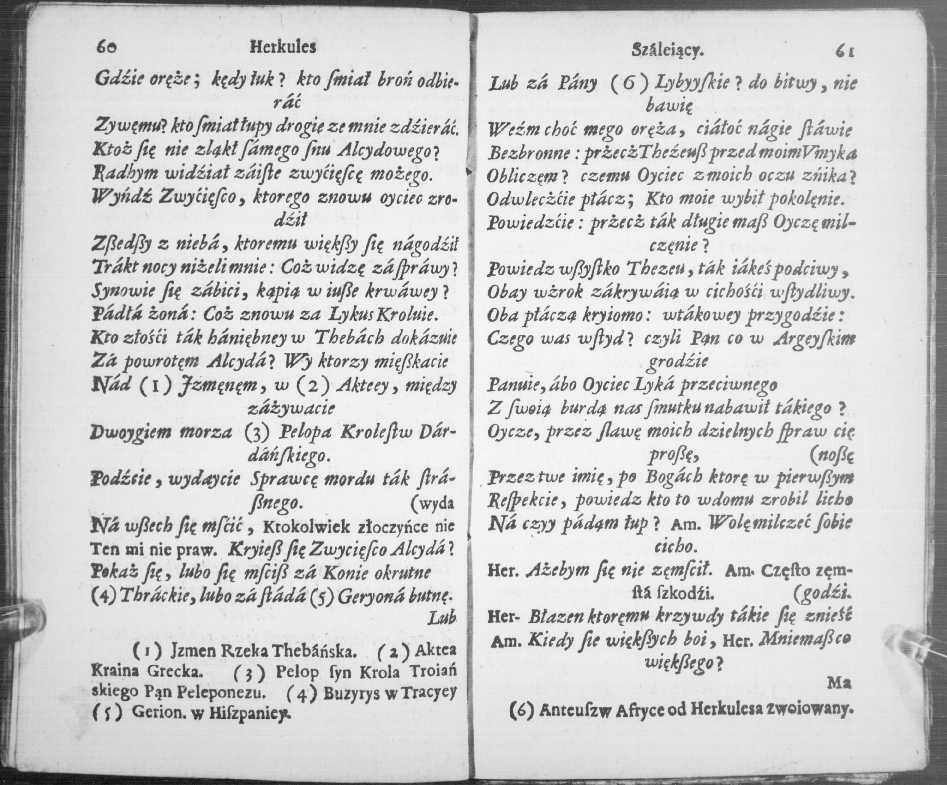 60 Herkules
Gdźie oręże; kędy łuk? kto ſmiał broń odbie-
ráć
Zywęmu? kto ſmiał łupy drogie ze mnie zdźieráć.
Ktoż ſię nie zląkł ſámego ſnu Alcydowego?
Radbym widźiał záiſte zwyćięſcę możego.
Wyńdź Zwyćięſco, ktorego znowu oyciec zro-
dźił
Zſzedſzy z niebá, ktoremu więkſzy ſię nágodźił
Trákt nocy niżeli mnie: Coż widzę zá ſpráwy?
Synowie ſię zábici, kąpią w iuſze krwáwey?
Pádłá żoná: Coż znowu za Lykus Kroluie.
Kto złośći ták hániębney w Thebách dokázuie
Zá powrotęm Alcydá? Wy ktorzy mięſzkacie
Nád (1) Jzmęnęm, w (2) Akteey, między
záżywacie
Dwoygiem morza (3) Pelopa Kroleſtw Dár-
dáńſkiego.
Podźcie, wydaycie Sprawcę mordu ták ſtrá-
ſznego. (wyda
Ná wſzech ſię mśćić, Ktokolwiek złoczyńce nie
Ten mi nie praw. Kryieſz ſię Zwycięſco Alcydá?
Pokaż ſię, lubo ſię mśćiſz zá Konie okrutne
(4) Thráckie, lubo zá ſtádá (5) Geryoná butnę.
Lub
(1) Jzmen Rzeka Thebáńska. (2) Aktea
Kraina Grecka. (3) Pelop ſyn Krola Troiań
skiego Pąn Peleponezu. (4) Buzyrys w Tracyey
(5) Gerion. w Hiſzpaniey.
Száleiący. 61
Lub zá Pány (6) Lybyyſkie? do bitwy, nie
bawię
Weźm choć mego oręża, ciáłoć nágie ſtáwie
Bezbronne: przecż Theźeuſz przed moim Vmyka
Obliczęm? czemu Oyciec z moich oczu zńika?
Odwlecżćie płácz; Kto moie wybił pokolęnie.
Powiedzćie: przecż ták długie maſz Oyczę mil-
częnie?
Powiedz wſzyſtko Thezeu, ták iákeś podciwy,
Obay wżrok zákrywáią w cichośći wſtydliwy.
Oba płáczą kryiomo: wtákowey przygodźie:
Czego was wſtyd? czyli Pąn co w Argeyſkim
grodźie
Panuie, ábo Oyciec Lyká przeciwnego
Z ſwoią burdą nas ſmutku nabawił tákiego?
Oycze, przez ſławę moich dzielnych ſpraw cię
proſzę, (noſzę
Przez twe imię, po Bogách ktorę w pierwſzym
Reſpekcie, powiedz kto to wdomu zrobił licho
Ná czyy pádąm łup? Am. Wolę milczeć ſobie
cicho.
Her. Ażebym ſię nie zęmśćił. Am. Częſto zęm-
ſtá ſzkodźi. (godźi.
Her- Błazen ktoręmu krzywdy tákie ſię znieść
Am. Kiedy ſie więkſzych boi, Her. Mniemaſz co
więkſzego?
Ma
(6) Anteuſzw Afryce od Herkulesa zwoiowany.